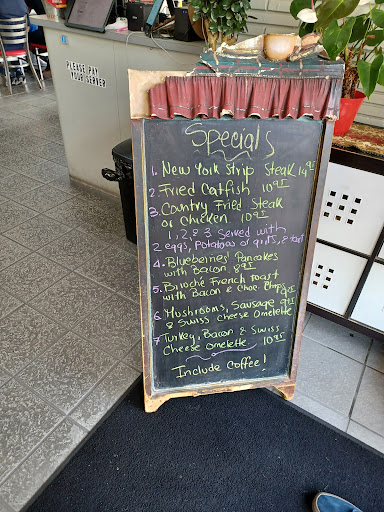 PLEASE PAY
YOUR SERVER
Specials
1. New York Strip Steak 14.95
2. Fried Catfish 10.95
3. Country Fried Steak
or Chicken 10.95
1, 2, & 3 Served with
2 eggs, Potatoes or grits, & toast
4. Blueberries Pancakes
with Bacon 8.95
5. Brioche French toast
with Bacon & Choc. Chips
6. Mushrooms, Sausage 9.95
& Swiss Cheese Omelette
7 Turkey, Bacon & Swiss
Cheese Omelette 10.95
Include Coffee!